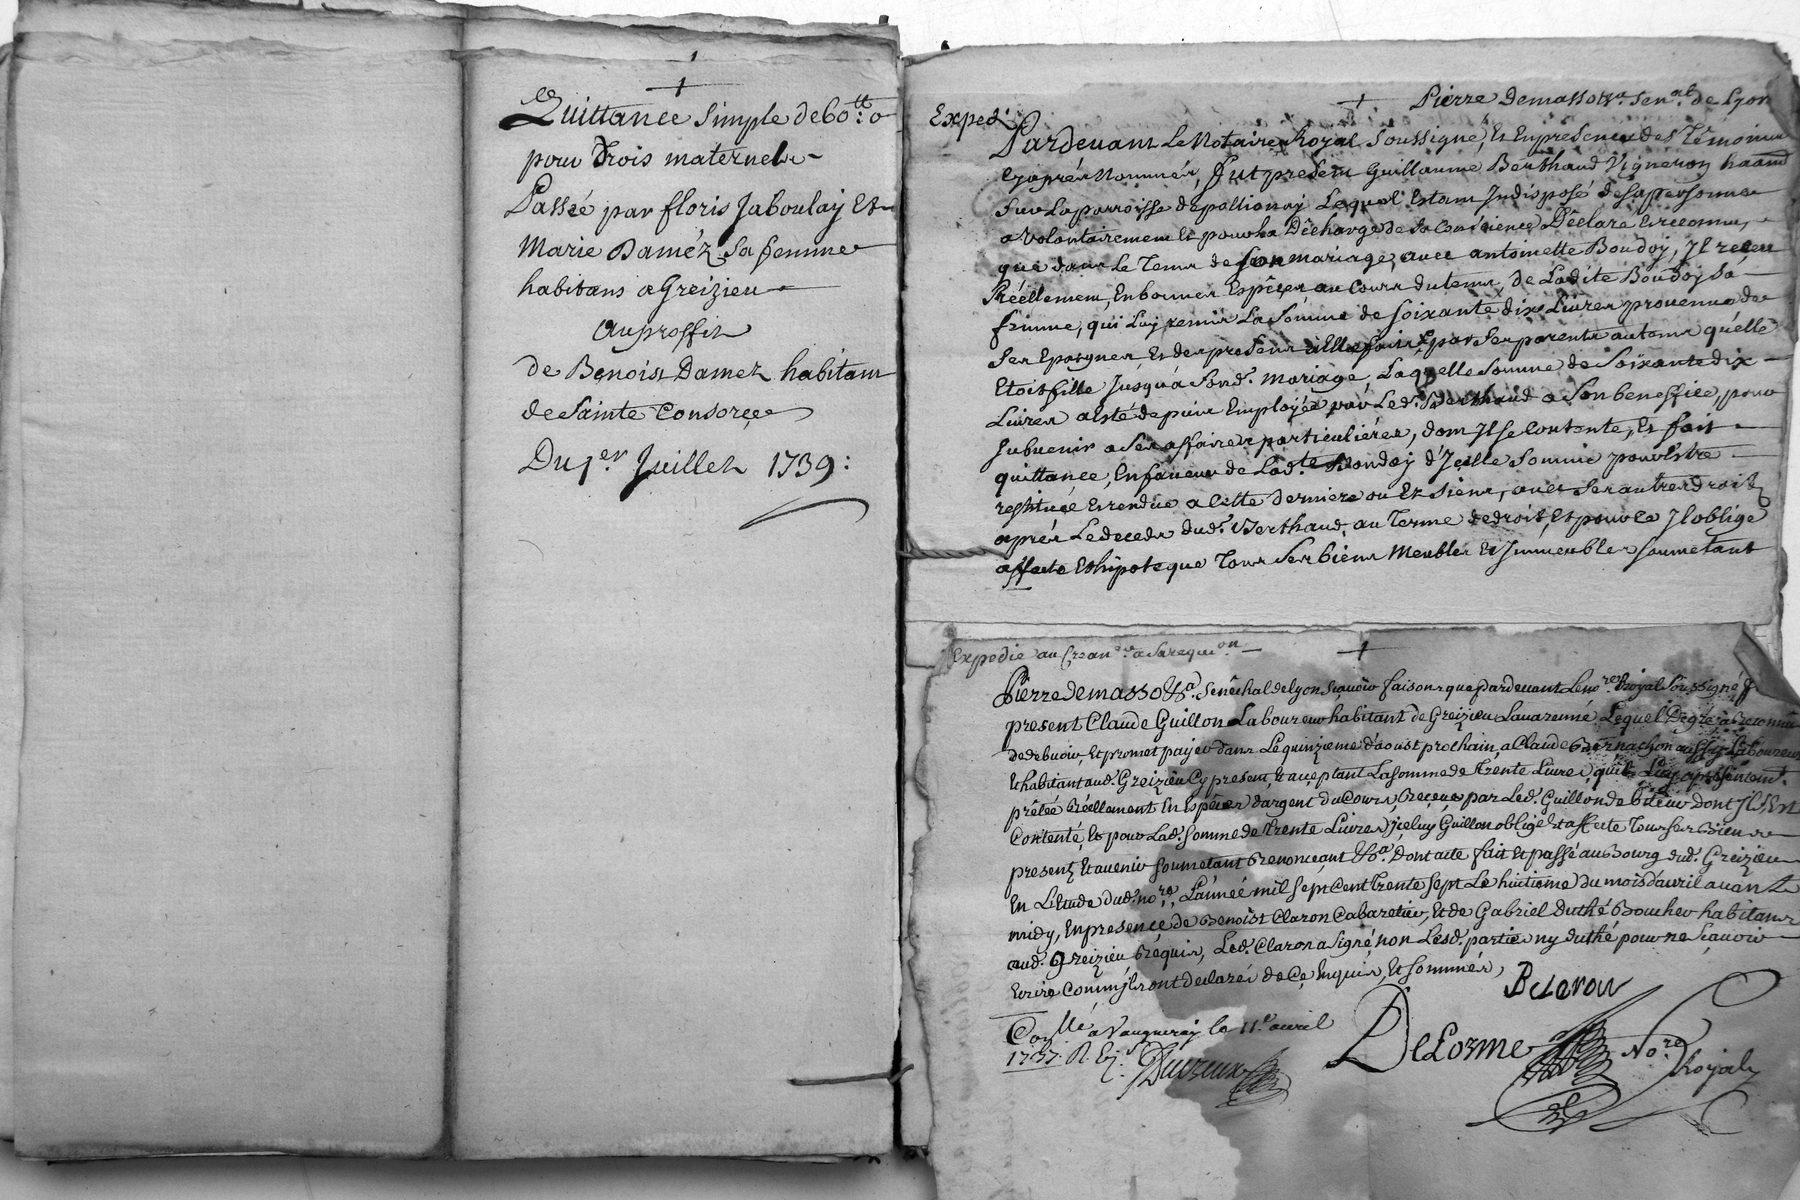 Quittance Simple de 60:tt o
pour Drois maternels
Passée par floris Jaboulay Et
Marie Daméz Sa femme
habitans a Greizieu
Au proffit
de Benoist Damez habitant
de Sainte Consorçe
Du 1.er Juillet 1739:
Pierre Demasso &.a Sen.al de Lyon
Exped.
Pardevant Le Notaire Royal Soussigné, Et En presence des Témoins
Cy aprés Nommés, fut present Guillaume Berthaud Vigneron habitant
Sur La parroisse de pollionay Lequel Estant Indisposé de sa personne
a volontairement Et pour La Décharge de Sa Consience Déclaré Et reconnu,
que dans Le Tems de Son mariage, avec antoinette Boudoy, Il a receu
Réellement, En bonnes Espéces au Cours du tems, de Ladite Boudoy Sa
femme, qui Luy remis La Somme de Soixante dix Livres provenue de
Ses Epargnes Et des presens a Elle faits par Ses parents au tems qu'elle
Etoit fille Jusqu'a Sond. mariage, Laquelle Somme de Soixante dix
Livres a Esté depuis Employée par Led. Berthaud a Son beneffice, pour
Subvenir a Ses affaires particuliéres, dont Il Se Contente, Et fait
quittance, En faveur de Lad.te Boudoy d'Jcelle Somme pour Estre
restituée Et rendue a Cette Derniere ou Ez Siens, avec Ses autres droits
aprés Le decedz dud. Berthaud au Terme de droit, Et pour Ce Il oblige
affecte Et hipoteque Tous Ses biens Meubles Et Jmmeubles Soumetant
Expedié au Crean.er a Sa requi.on
Pierre demasso &.a Sénéchal de Lyon Sçavoir faisons que Pardevant Le no.re Royal Soussigné f
present Claude Guillon Laboureur habitant de Greizieu Lavarenne Lequel De gré a Reconnu
de debvoir, Et promet payer dans Le quinzieme d'aoust prochain, a Claude Bernachon aussy Laboureur
Et habitant aud. Greizieu Cy present, Et acceptant La somme de Trente Livres, qu'il Luy a presentem.t
prêtée Réellement En Espéces d'argent du Cours Reçeue par Led. Guillon debiteur dont Il S'Est
Contenté, Et pour Lad. Somme de Trente Livres Jceluy Guillon oblige Et affecte Tous Ses Biens
presentz Et avenir Soumetant Renonceant &.a Dont acte fait Et passé au Bourg dud. Greizieu
En L'Etude dud. no.re, L'année mil Sept Cent Trente Sept Le huitieme Du mois d'avril avant
midy, En presence de Benoist Claron Cabaretier, Et de Gabriel Duthé Boucher habitans
aud. Greizieu Réquis, Led. Claron a Signé non Lesd. parties ny duthé pour ne Sçavoir
Ecrire Comm'ils ont declarés de Ce Enquis, Et Sommés,
B Claron
Con.llé a Vaugneray le 11.e avril
1737. R.
DeLorme No.re Royal